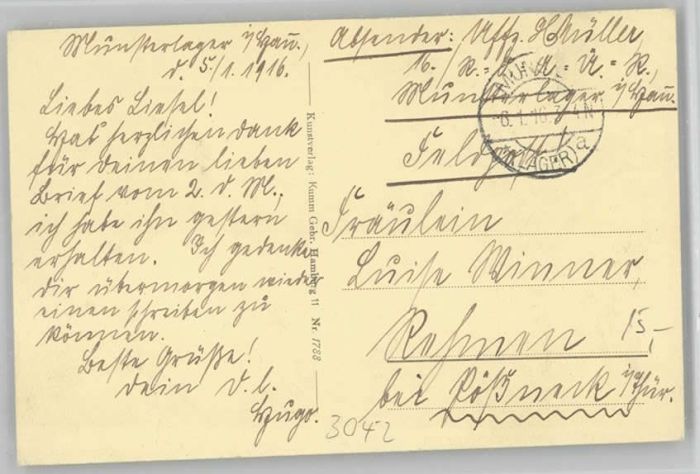 Munsterlager i/Han.,
d. 5/1. 1916.
Liebes Liesel!
Hab herzlichen Dank
für deinen lieben
Brief vom 2. d. M.,
ich habe ihn gestern
erhalten. Ich gedenke
dir übermorgen wieder
einen schreiben zu
können.
Beste Grüße!
Dein d. l.
Hugo.
Kunstverlag: Kumm Gebr. Hamburg 11 Nr. 1788
Absender: Uffz. H Müller,
R.
Munsterlager i/Han.
Feldpost!
6.1.16. N
LAGER) a
Fräulein
Luise Winner,
Rehmen
15,-
bei Pößneck i/Thür.
3042